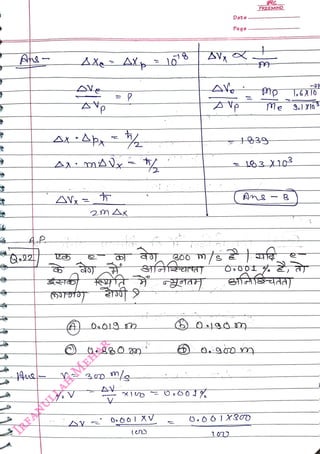 Date
Page
Ans - Δxe = Δxp = 10⁻⁸
ΔVx ∝ 1/m
ΔVe / ΔVp = ?
ΔVe / ΔVp = mp / me = 1.6x10⁻²⁷ / 9.1x10⁻³¹
Δx · Δpx = ħ/2
= 1839
Δx · mΔVx = ħ/2
= 1.83 x10³
ΔVx = ħ / 2mΔx
Ans - B
A.P.
Q.22) एक e- का वेग 300 m/s है। यदि e-
के वेग में अनिश्चितता 0.001 % है, तो
इसकी स्थिति में न्यूनतम अनिश्चितता
लगभग होगी ?
(A) 0.019 m (b) 0.190 m
(C) 0.280 m (D) 0.900 m
Ans - V = 300 m/s
% V = ΔV/V x100 = 0.001%
ΔV = 0.001 xV / 100 = 0.001x300 / 100
IRFANULLAH MEHER